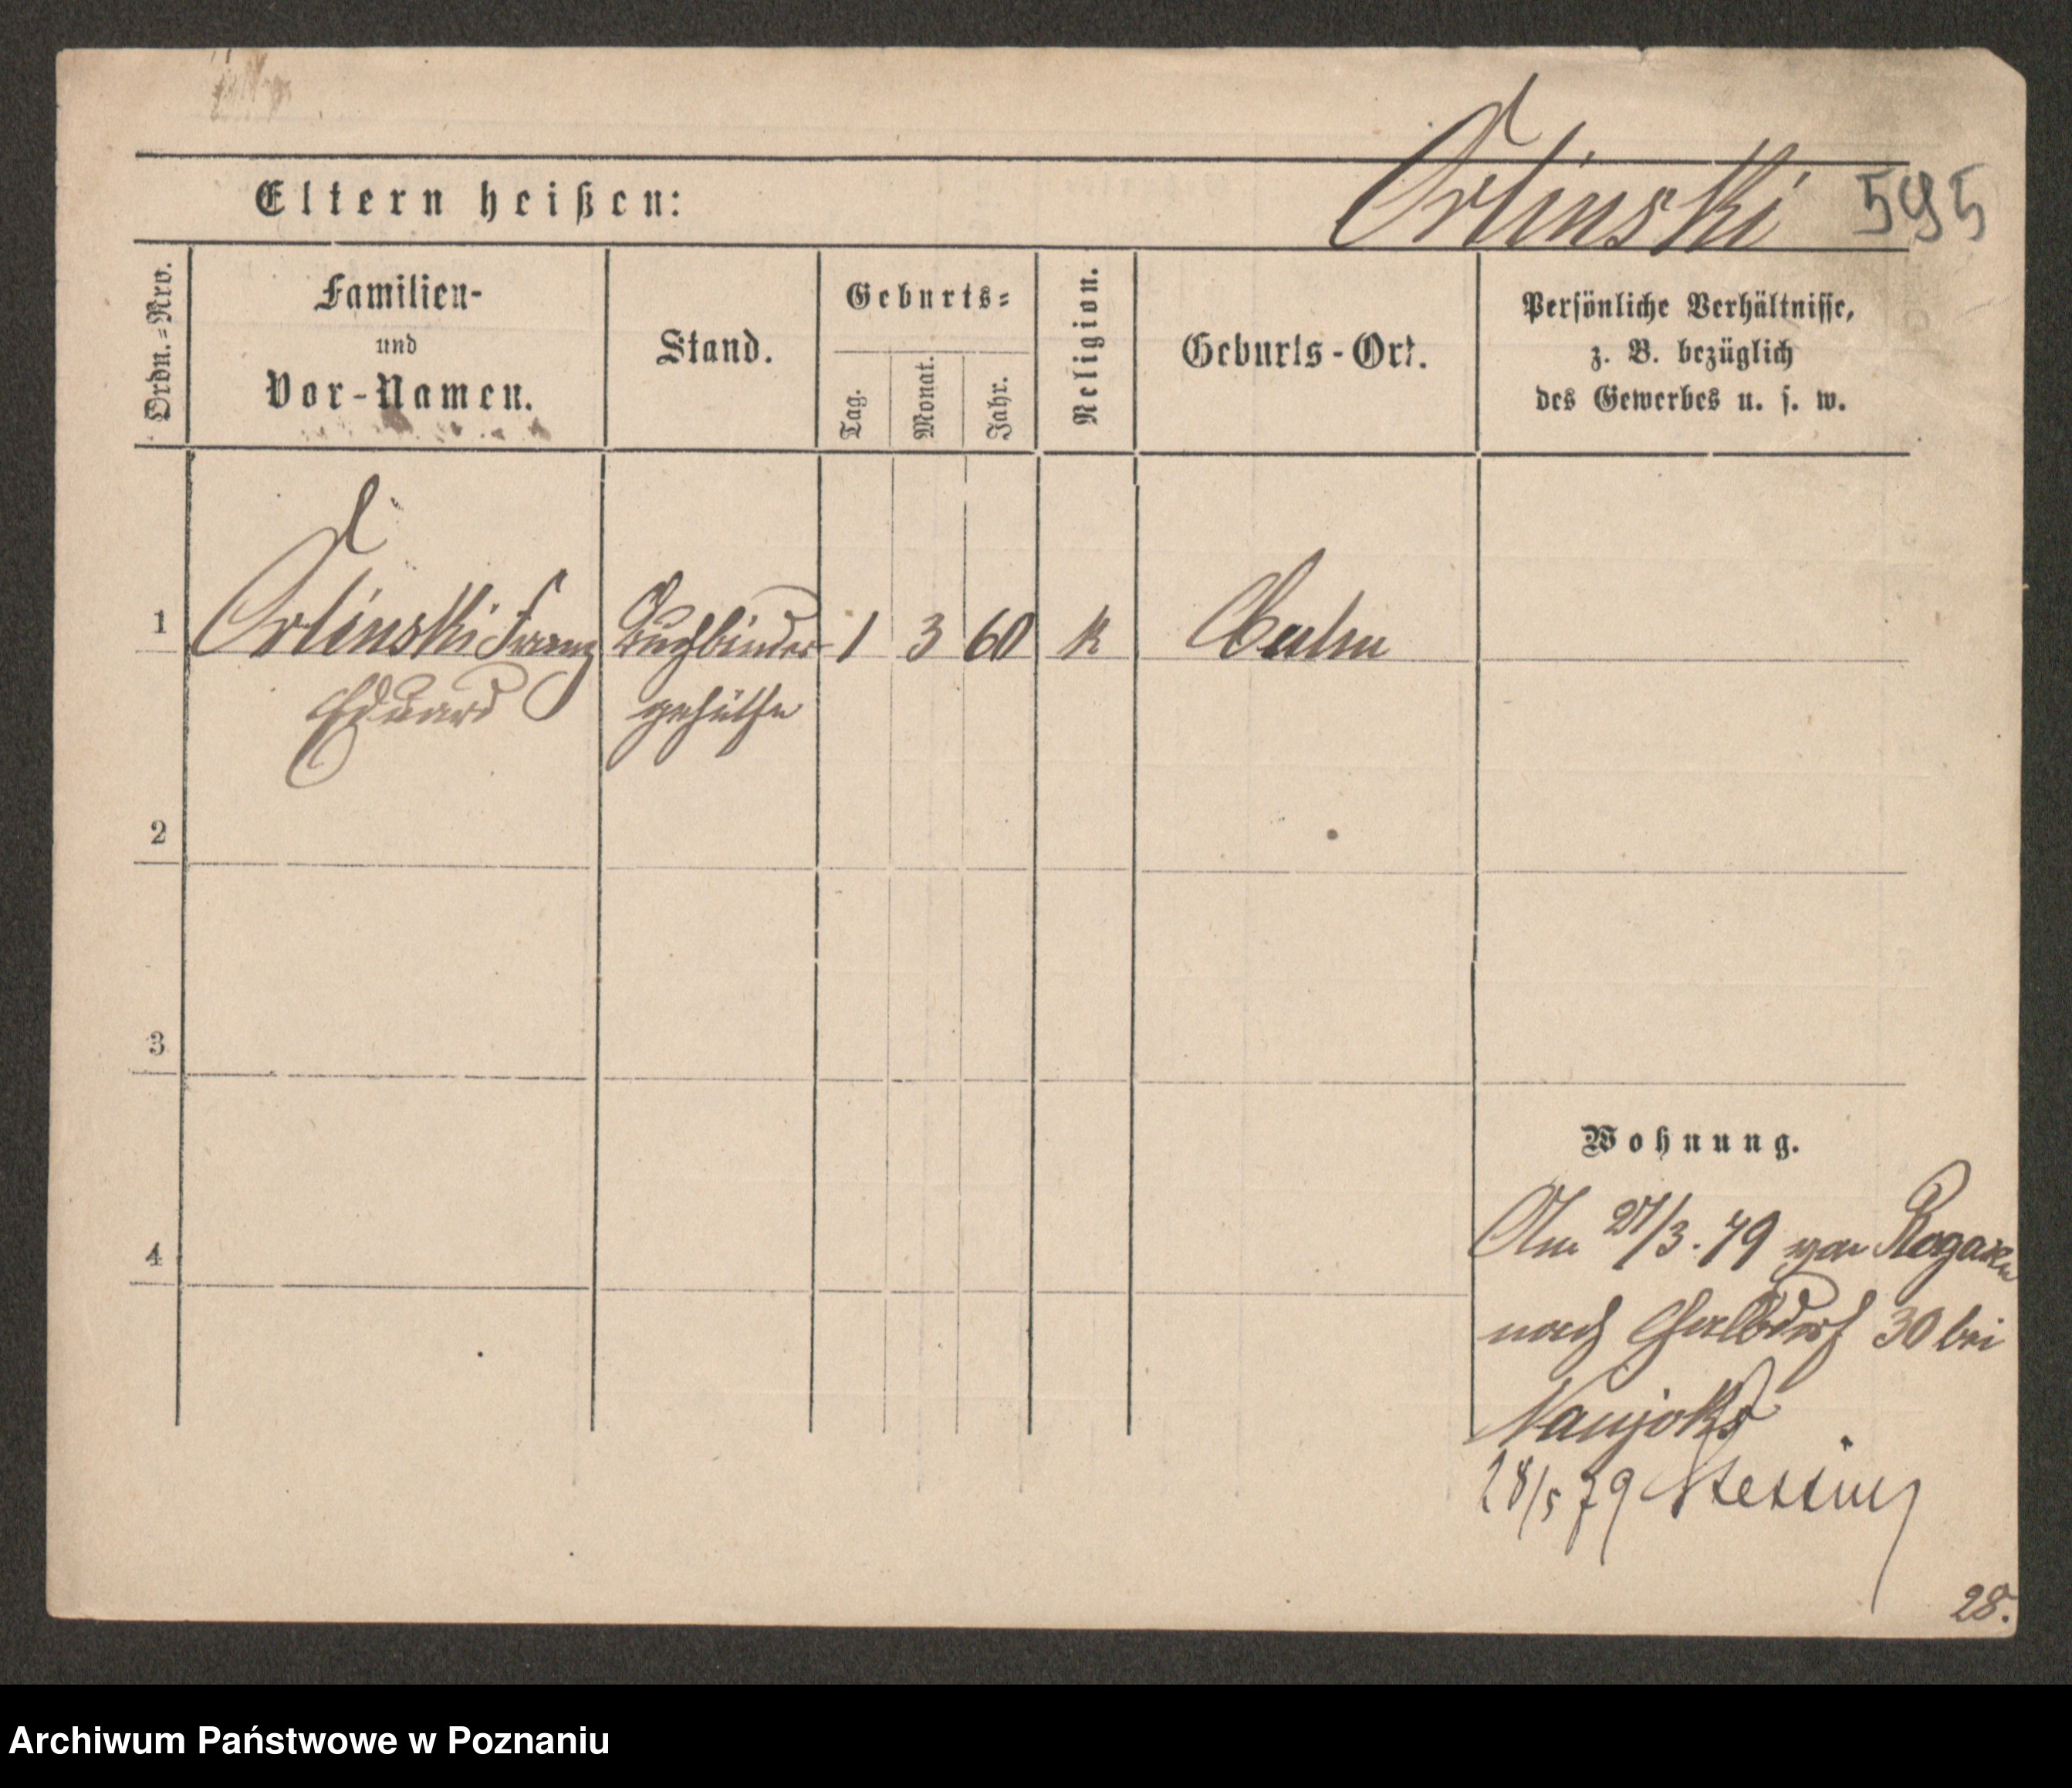 Eltern heißen:
Orlinski 595
Ordn.=Nro.
Familien-
und
Vor-Namen.
Stand.
Geburts=
Tag.
Monat.
Jahr.
Religion.
Geburts-Ort.
Persönliche Verhältnisse,
z. B. bezüglich
des Gewerbes u. s. w.
1 Orlinski Franz Buchbinder 1 3 60 k Culm
Eduard gehülfe
2
3
Wohnung.
4
Am 27/3.79 von
nach Halbdorf 30 bei
Naujoks
28/5 79 Stettin
28.
Archiwum Państwowe w Poznaniu